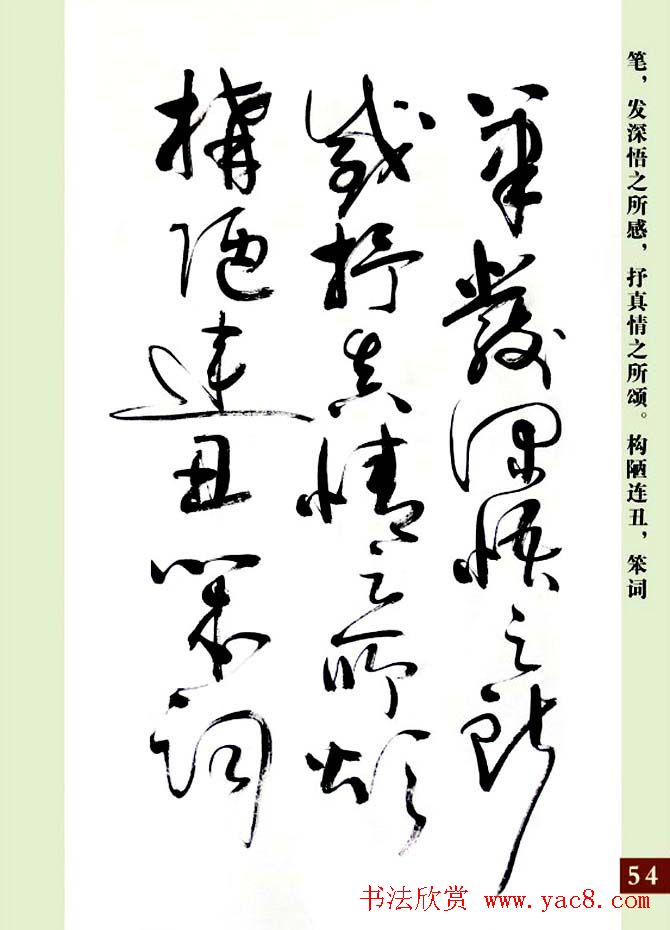 筆發深悟之所
感抒真情之所頌
構陋連丑笨词
笔，发深悟之所感，抒真情之所颂。构陋连丑，笨词
54
书法欣赏 www.yac8.com